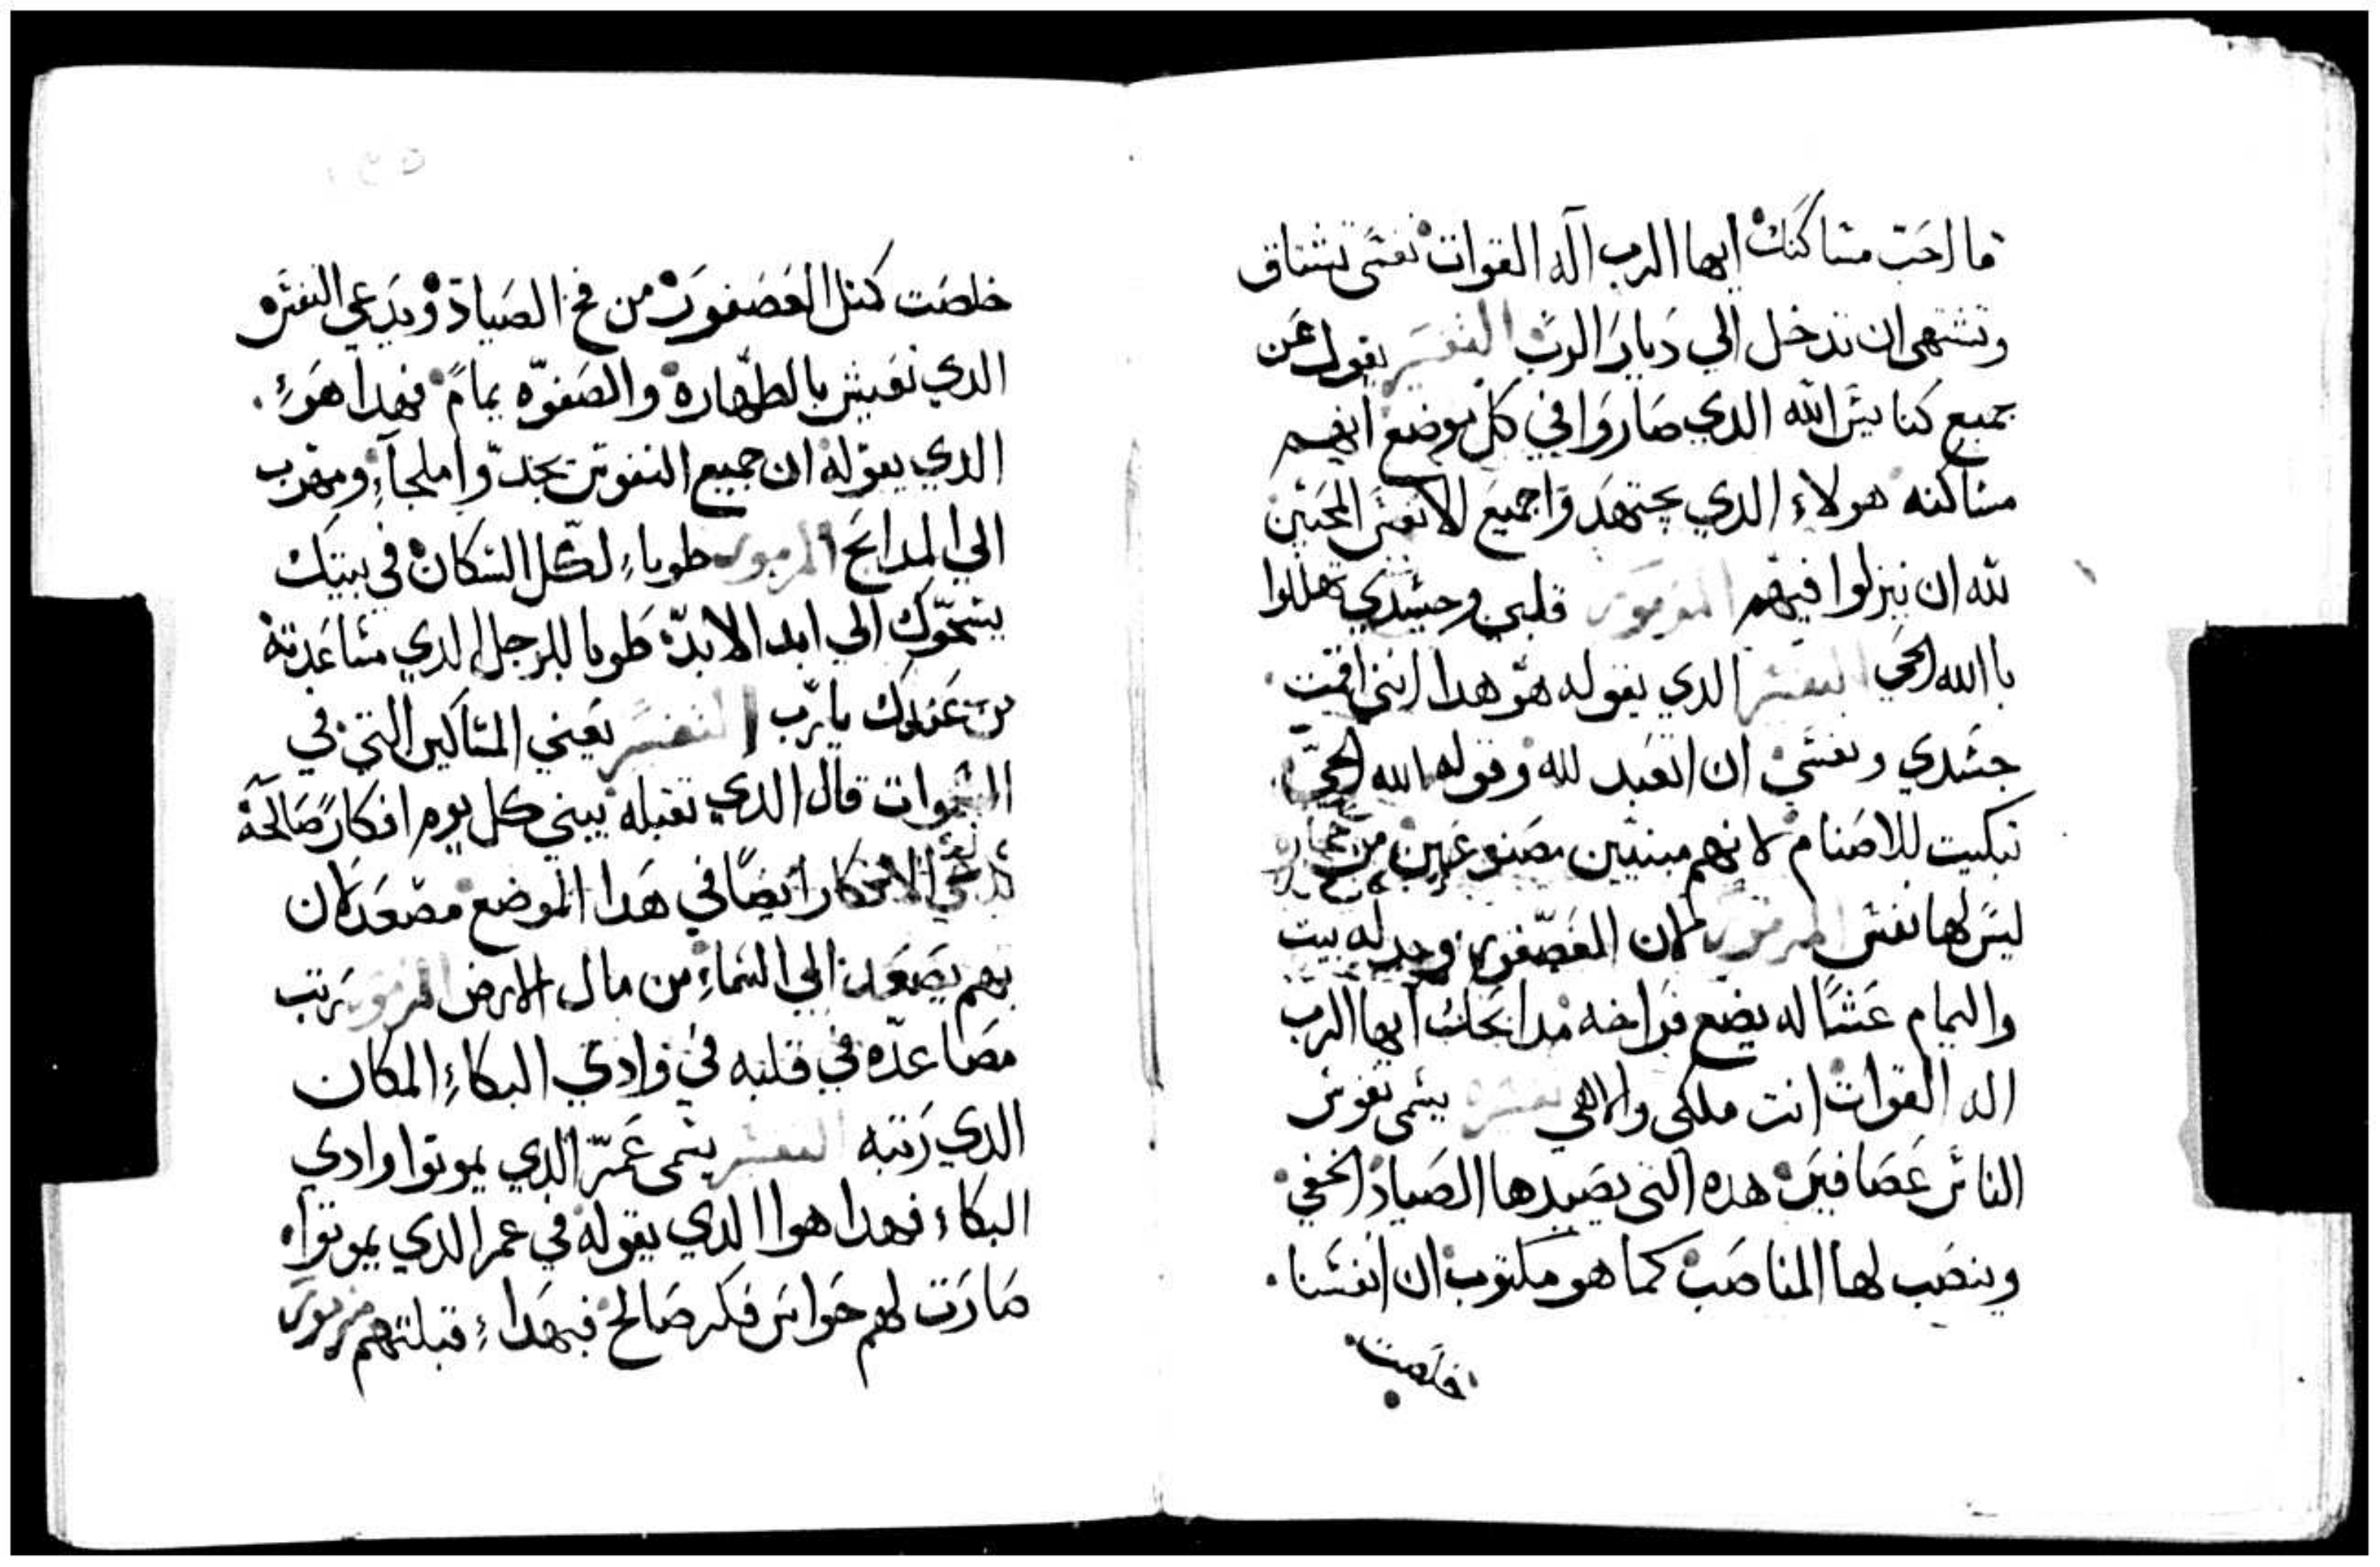 ما احب مساكنك ايها الرب اله القوات نفسي تشتاق
وتشتهى ان تدخل الي ديار الرب التفسير يقول عن
جميع كنايس الله الدي صاروا في كل موضع انهم
مساكنه هولاء الدي يجتهدوا جميع الانفس المحبين
لله ان ينزلوا فيهم المزمور قلبي وجسدي تهللوا
باالله الحي التفسير الدي يقوله هو هدا انني اقمت
جسدي ونفسي ان اتعبد لله وقوله الله الحي
تبكيت للاصنام لانهم ميتين مصنوعين من حجاره
ليس لها نفس المزمور لان العصفور وجد له بيت
واليمام عشا له يضع فراخه مدابحك ايها الرب
اله القوات انت ملكي والاهي تفسيره يسمى نفوس
الناس عصافير هده التى يصيدها الصياد الخفي
وينصب لها المناصب كما هو مكتوب ان انفسنا
خلصت
خلصت كمثل العصفور من فخ الصياد ويدعي النفس
الدي تعيش بالطهاره والصفوه يمام فهدا هو
الدي يقوله ان جميع النفوس يجدوا ملجاء ومهرب
الي المدابح المزمور طوباء لكل السكان في بيتك
يسبحوك الي ابد الابد طوبا للرجل الدي مساعدته
من عندك يارب التفسير يعني المساكين التي في
السموات قال الدي تقبله يبني كل يوم افكار صالحة
تدعي الافكار ايضا في هدا الموضع مصعد لان
بهم يصعد الي السماء من مال الارض المزمور رتب
مصاعده في قلبه في وادي البكاء المكان
الدي رتبه التفسير يسمى عمر الدي يموتوا وادي
البكاء فهدا هوا الدي يقوله في عمر الدي يموتوا
صارت لهم حواس فكر صالح فبهداء قبلتهم مزمور